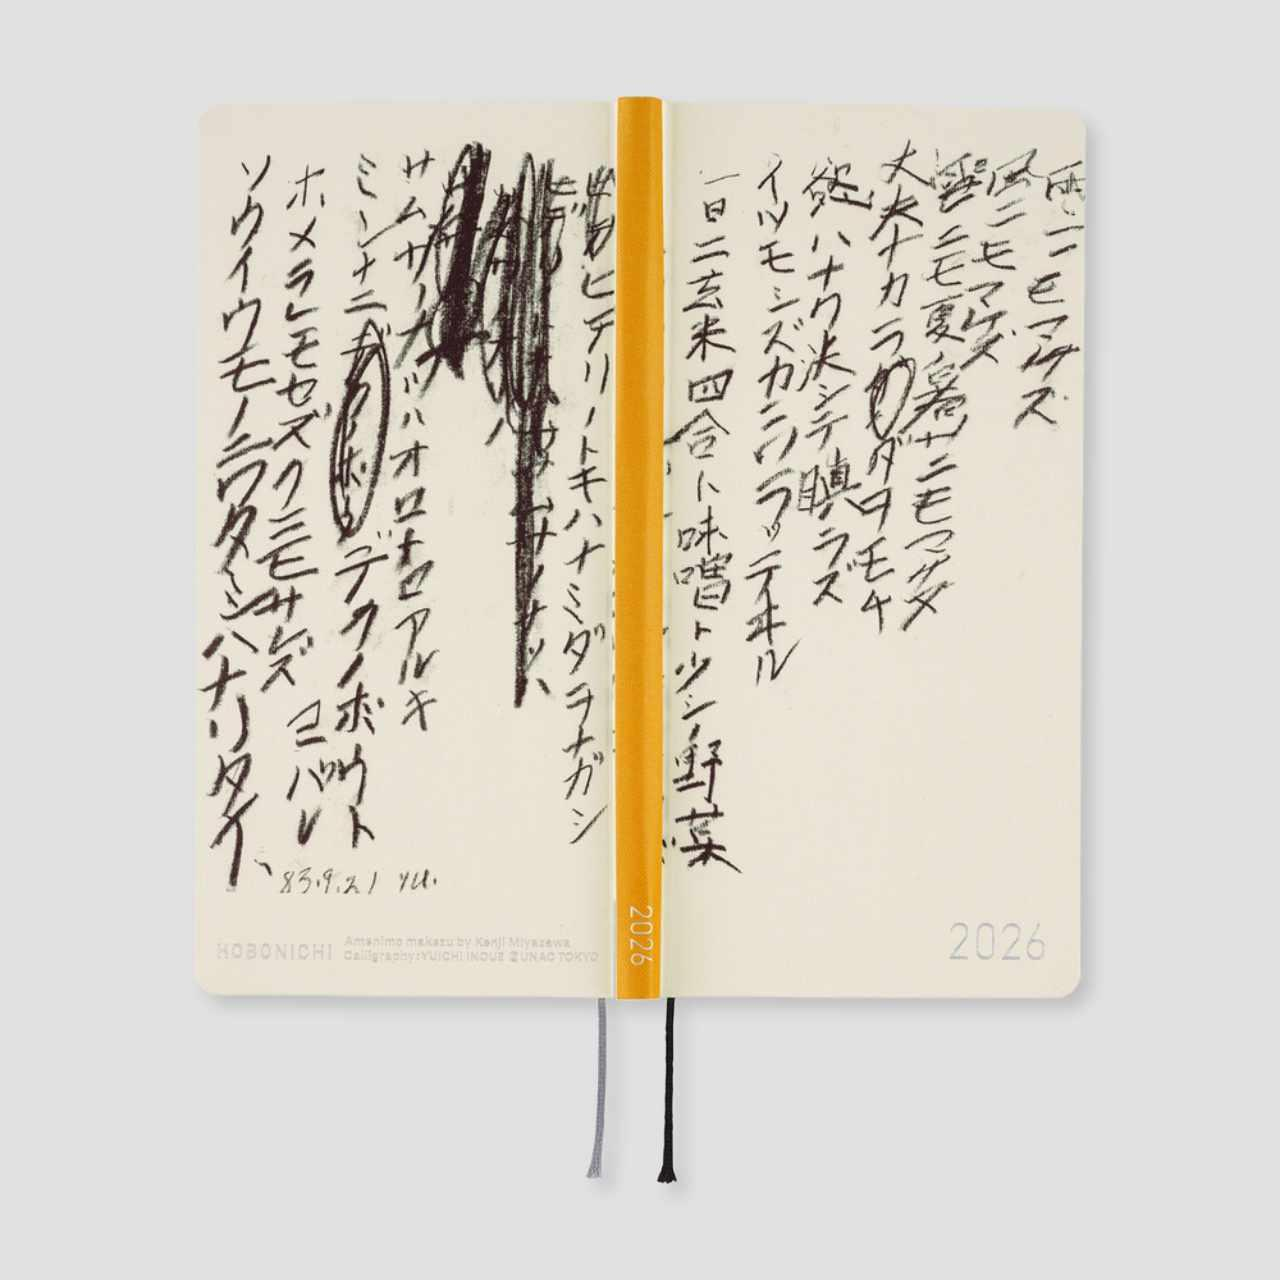 雨ニモマケズ
風ニモマケズ
雪ニモ夏ノ暑サニモマケヌ
丈夫ナカラダヲモチ
慾ハナク決シテ瞋ラズ
イツモシズカニワラッテイヰル
一日ニ玄米四合ト味噌ト少シノ野菜
2026
2026
ヒデリノトキハナミダヲナガシ
サムサノナツハオロオロアルキ
ミンナニ
デクノボウト
ヨバレ
ホメラレモセズクニモサレズ
ソウイウモノニワタシハナリタイ
83.9.21 YU.
HOBONICHI
Amenimo makezu by Kenji Miyazawa
Calligraphy:YUICHI INOUE ©UNAC TOKYO